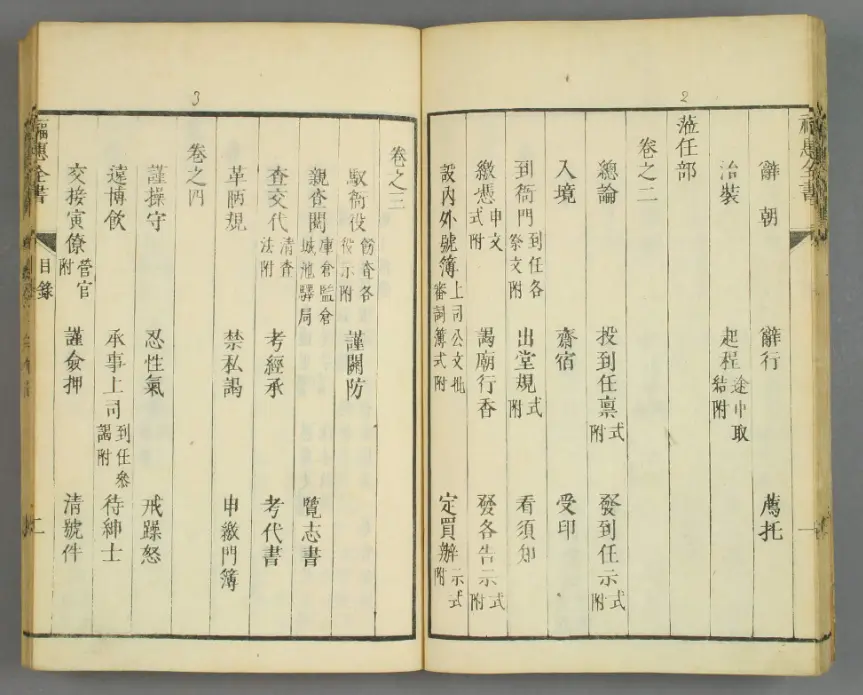 福惠全書
一
2
辭朝 辭行 薦托
治裝 起程途中取結附
蒞任部
卷之二
總論 投到任稟式附 發到任示式附
入境 齋宿 受印
到衙門到任各祭文附 出堂規式附 看須知
繳憑申文式附 謁廟行香 發各告示式附
設內外號簿上司公文批審詞簿式附 定買辦示式附
3
卷之三
馭衙役飭查各役示附 謹關防
親查閱庫倉監倉城池驛局 覽志書
查交代清查法附 考經承 考代書
革陋規 禁私謁 申繳門簿
卷之四
謹操守 忍性氣 戒躁怒
遠博飲 承事上司到任參謁附 待紳士
交接寅僚營官附 謹僉押 清號件
福惠全書 目錄 二